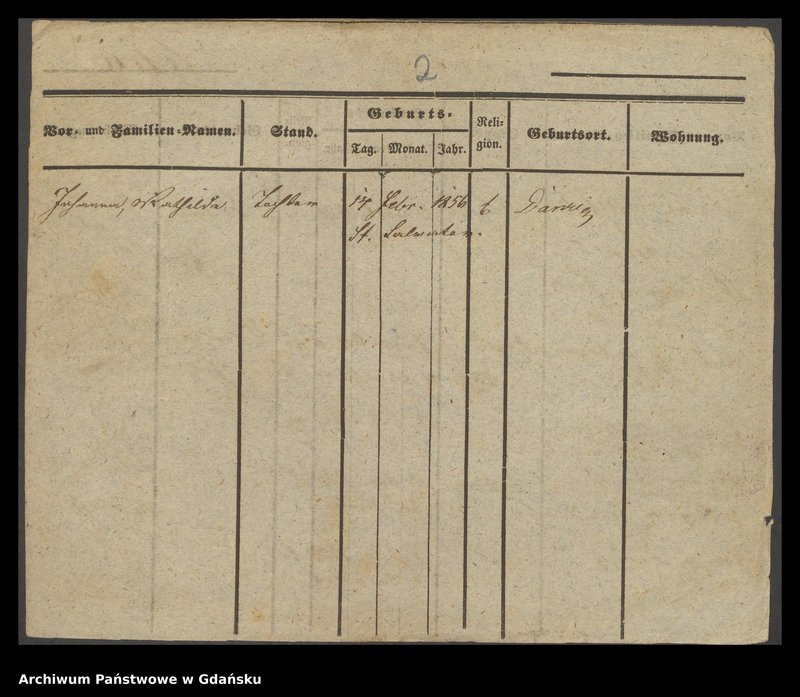 2
Vor- und Familien-Namen. Stand. Geburts- Religion. Geburtsort. Wohnung.
Tag. Monat. Jahr.
Johanna, Mathilde Tochter 14 Febr. 1856 Danzig
St. Salvator.
Archiwum Państwowe w Gdańsku